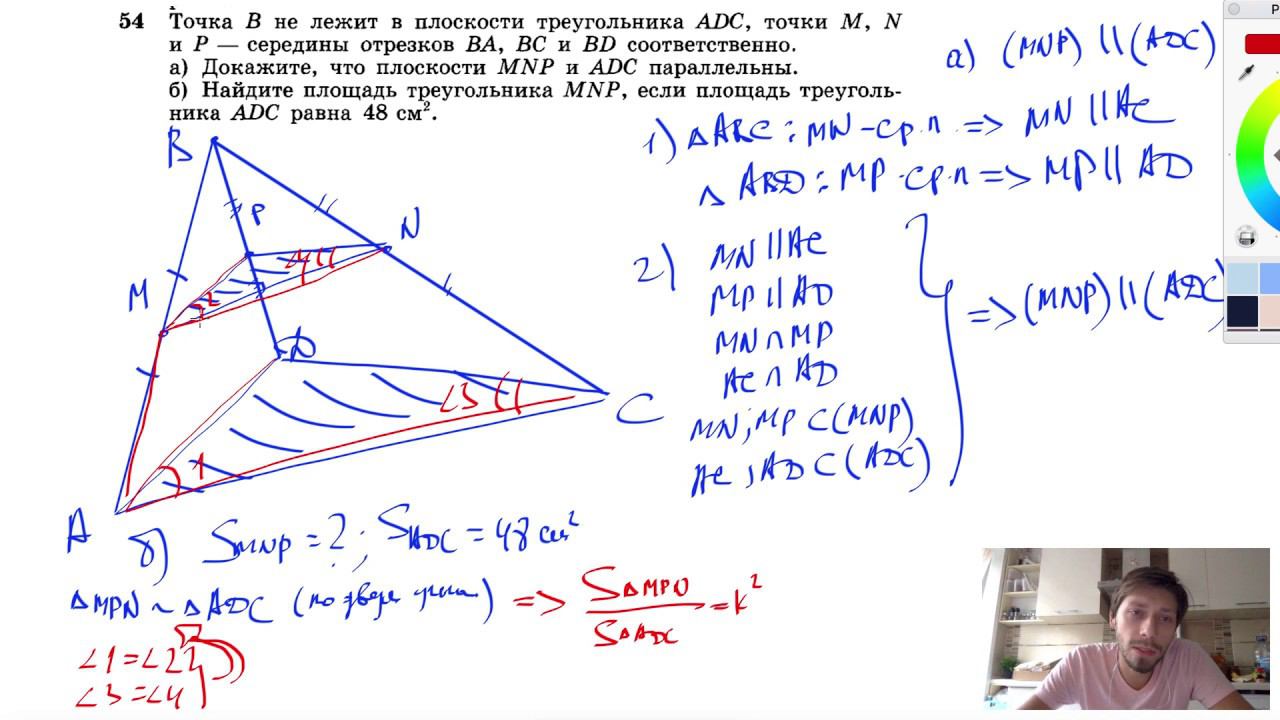 54 Точка B не лежит в плоскости треугольника ADC, точки M, N
и P — середины отрезков BA, BC и BD соответственно.
а) Докажите, что плоскости MNP и ADC параллельны.
б) Найдите площадь треугольника MNP, если площадь треуголь-
ника ADC равна 48 см².
а) (MNP) || (ADC)
1) △ABC : MN - ср.л => MN || AC
△ ABD : MP - ср.л => MP || AD
2) MN || AC
MP || AD
MN ∩ MP
AC ∩ AD
MN; MP ⊂ (MNP)
AC, AD ⊂ (ADC)
=> (MNP) || (ADC)
B
P
N
M
2
4
D
∠3
C
1
A
б) SMNP = ?; SADC = 48 см²
△MPN ~ △ADC (по двум углам) => S△MPN / S△ADC = k²
∠1 = ∠2
∠3 = ∠4
P